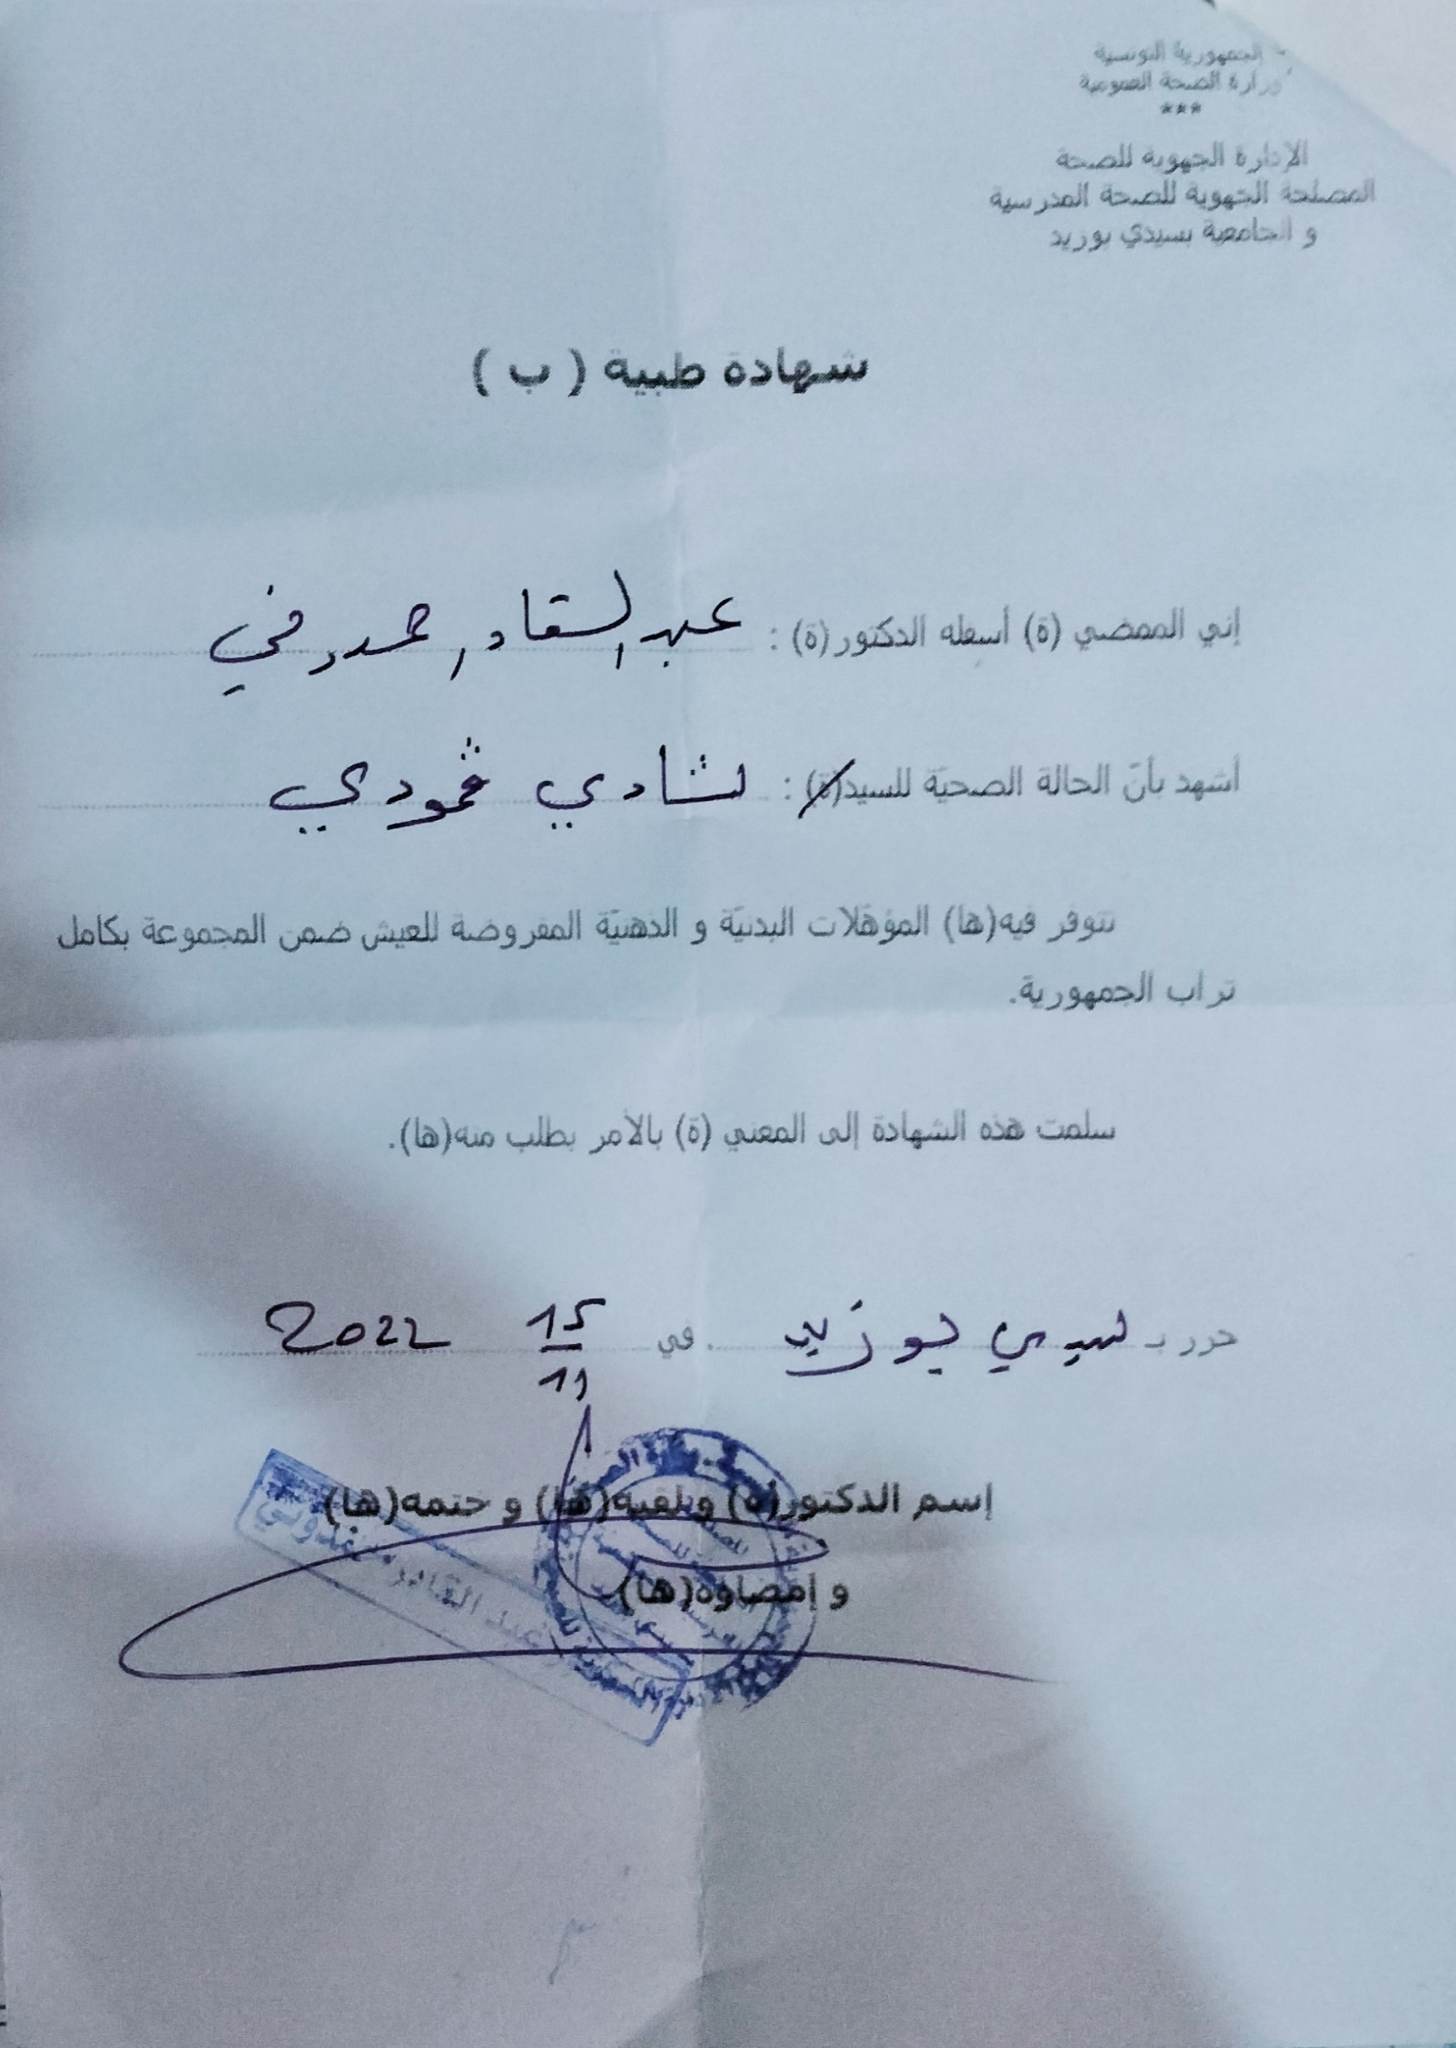 الجمهورية التونسية
وزارة الصحة العمومية
***
الإدارة الجهوية للصحة
المصلحة الجهوية للصحة المدرسية
و الجامعية بسيدي بوزيد
شهادة طبية ( ب )
إني الممضي (ة) أسفله الدكتور (ة) : عبد القادر
أشهد بأنّ الحالة الصحيّة للسيد(ة) : شادي محمودي
تتوفر فيه(ها) المؤهّلات البدنيّة و الذهنيّة المفروضة للعيش ضمن المجموعة بكامل
تراب الجمهورية.
سلمت هذه الشهادة إلى المعني (ة) بالأمر بطلب منه(ها).
حرر بـ سيدي بوزيد في 15/11 2022
إسم الدكتور(ة) ولقبه(ها) و ختمه(ها)
و إمضاؤه(ها)
عبد القادر